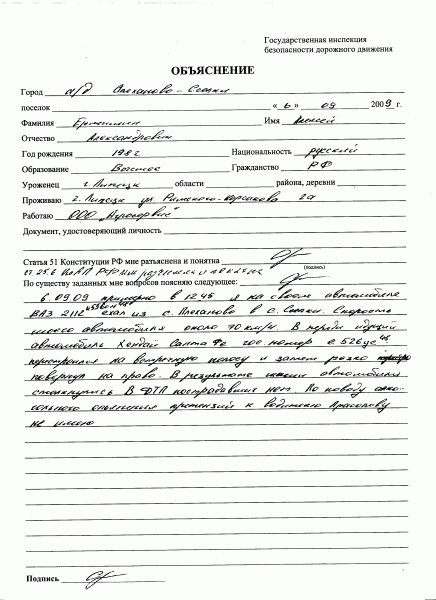 Государственная инспекция
безопасности дорожного движения
ОБЪЯСНЕНИЕ
Город а/д Плеханово-Сселки
поселок « 6 » 09 2009 г.
Фамилия Имя Алексей
Отчество Александрович
Год рождения 1982 Национальность русский
Образование Гражданство РФ
Уроженец г. Липецк области района, деревни
Проживаю г. Липецк ул. Римского-Корсакова 2а
Работаю ООО
Документ, удостоверяющий личность
Статья 51 Конституции РФ мне разъяснена и понятна
(подпись)
ст. 25.6 КоАП РФ мне разъяснена и понятна
По существу заданных мне вопросов поясняю следующее:
6.09.09 примерно в 12 45 я на своем автомобиле
ВАЗ 2112 ехал из с. Плеханово в с. Сселки. Скорость
моего автомобиля около 70 км/ч. В переди идущий
автомобиль Хендай Санта Фе гос. номер е 526 ус 48
перестроился на встречную полосу и затем резко
повернул на право. В результате автомобили
столкнулись В ДТП пострадавших нет. По поводу алко-
гольного опьянения претензий к водителю
не имею
Подпись